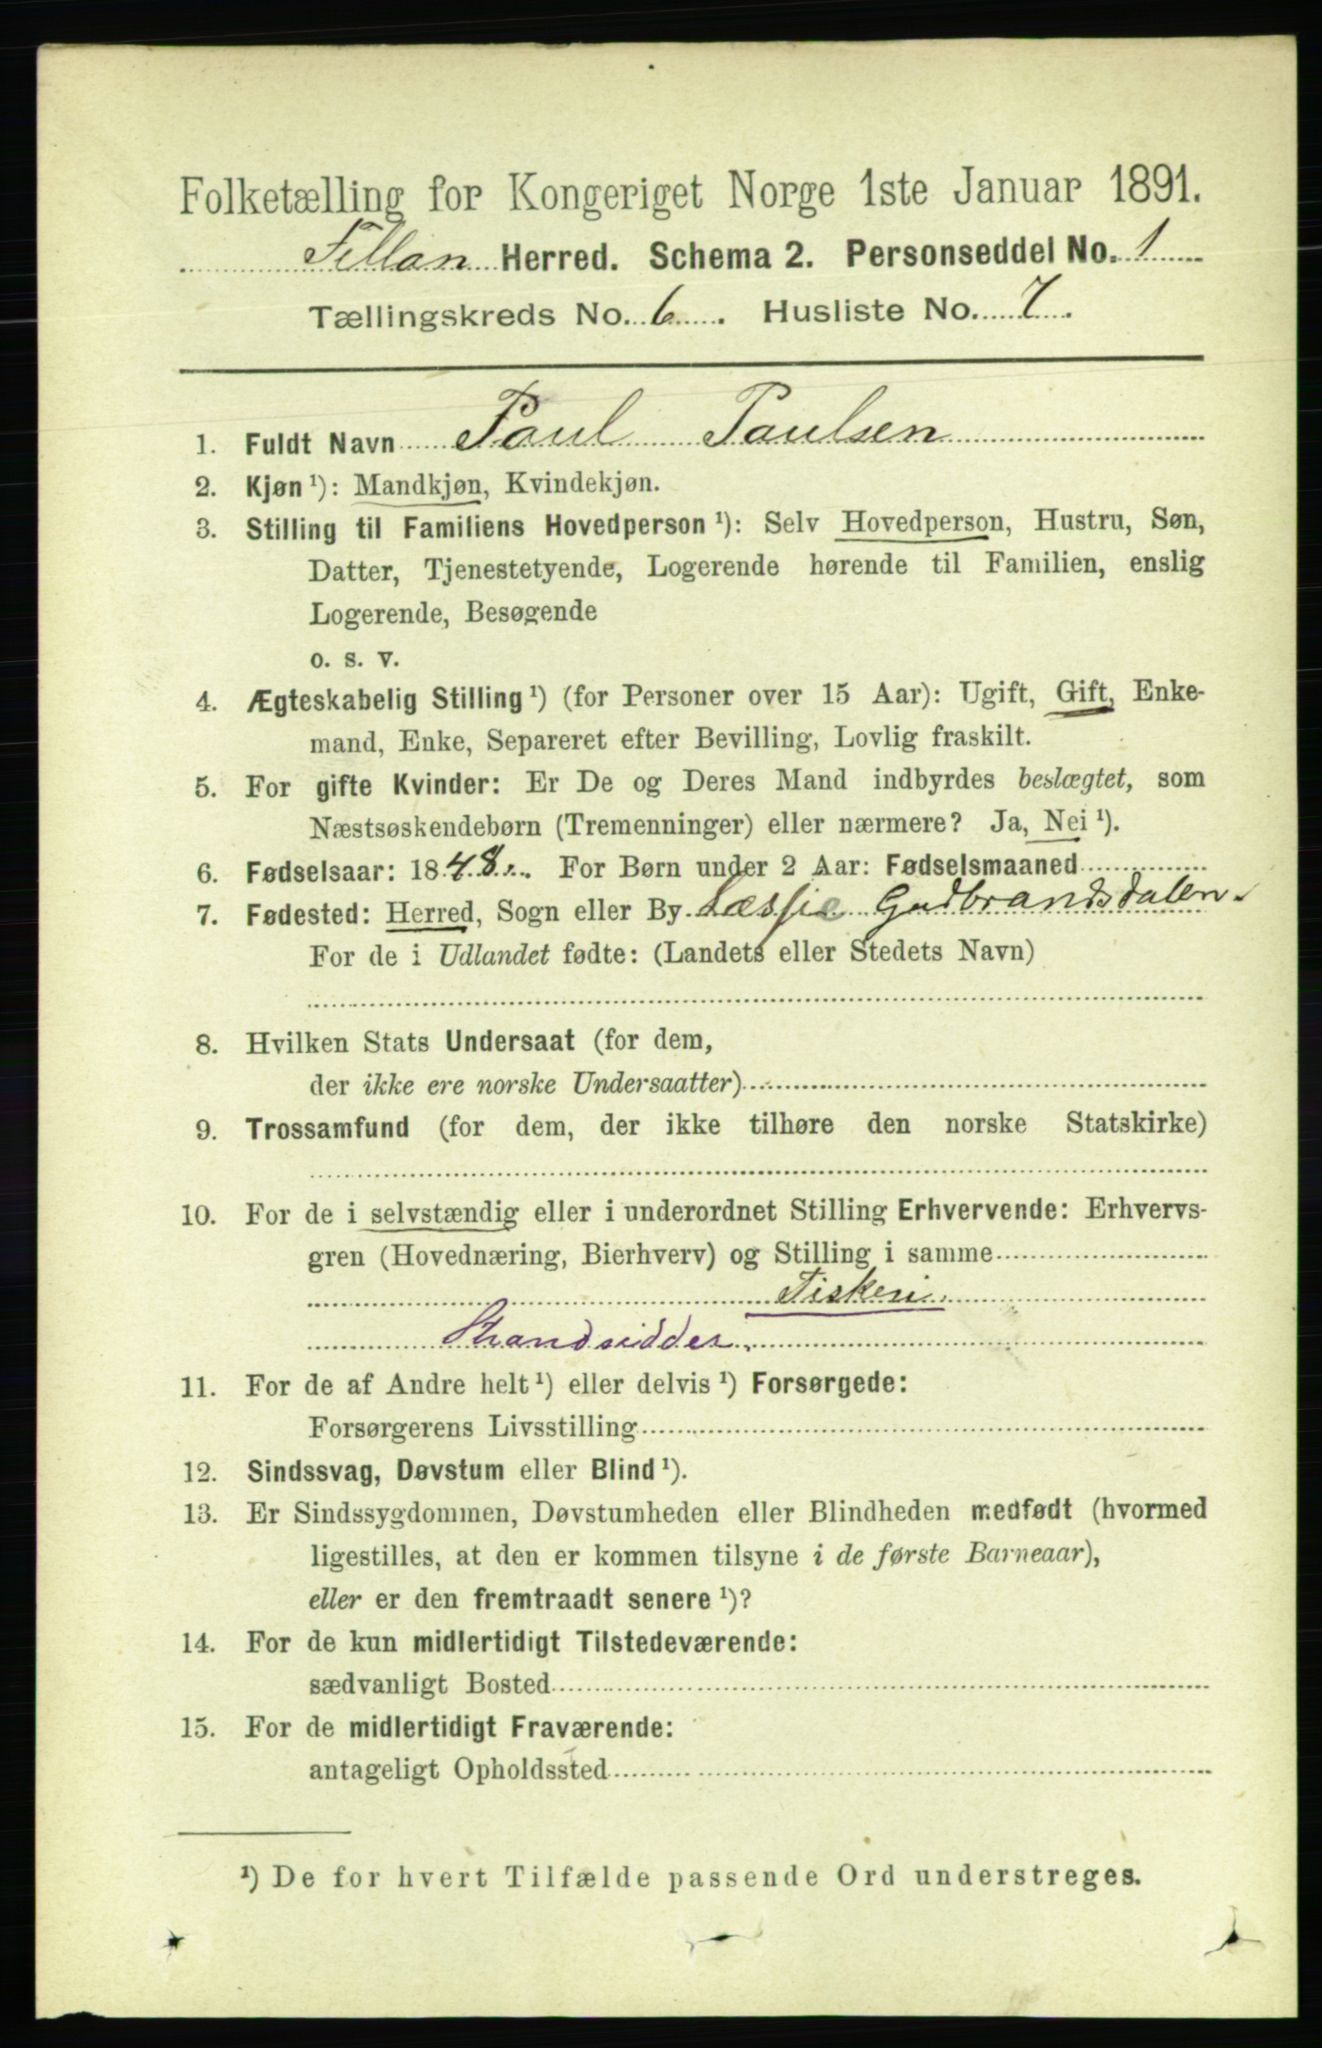 Folketælling for Kongeriget Norge 1ste Januar 1891.
Fillan Herred. Schema 2. Personseddel No. 1
Tællingskreds No. 6. Husliste No. 7.
1. Fuldt Navn Paul Paulsen
2. Kjøn ¹): Mandkjøn, Kvindekjøn.
3. Stilling til Familiens Hovedperson ¹): Selv Hovedperson, Hustru, Søn,
Datter, Tjenestetyende, Logerende hørende til Familien, enslig
Logerende, Besøgende
o. s. v.
4. Ægteskabelig Stilling ¹) (for Personer over 15 Aar): Ugift, Gift, Enke-
mand, Enke, Separeret efter Bevilling, Lovlig fraskilt.
5. For gifte Kvinder: Er De og Deres Mand indbyrdes beslægtet, som
Næstsøskendebørn (Tremenninger) eller nærmere? Ja, Nei ¹).
6. Fødselsaar: 1848. For Børn under 2 Aar: Fødselsmaaned
7. Fødested: Herred, Sogn eller By Læssje Gudbrandsdalen.
For de i Udlandet fødte: (Landets eller Stedets Navn)
8. Hvilken Stats Undersaat (for dem,
der ikke ere norske Undersaatter)
9. Trossamfund (for dem, der ikke tilhøre den norske Statskirke)
10. For de i selvstændig eller i underordnet Stilling Erhvervende: Erhvervs-
gren (Hovednæring, Bierhverv) og Stilling i samme
Fiskeri.
Strandsidder.
11. For de af Andre helt ¹) eller delvis ¹) Forsørgede:
Forsørgerens Livsstilling
12. Sindssvag, Døvstum eller Blind ¹).
13. Er Sindssygdommen, Døvstumheden eller Blindheden medfødt (hvormed
ligestilles, at den er kommen tilsyne i de første Barneaar),
eller er den fremtraadt senere ¹)?
14. For de kun midlertidigt Tilstedeværende:
sædvanligt Bosted
15. For de midlertidigt Fraværende:
antageligt Opholdssted
¹) De for hvert Tilfælde passende Ord understreges.